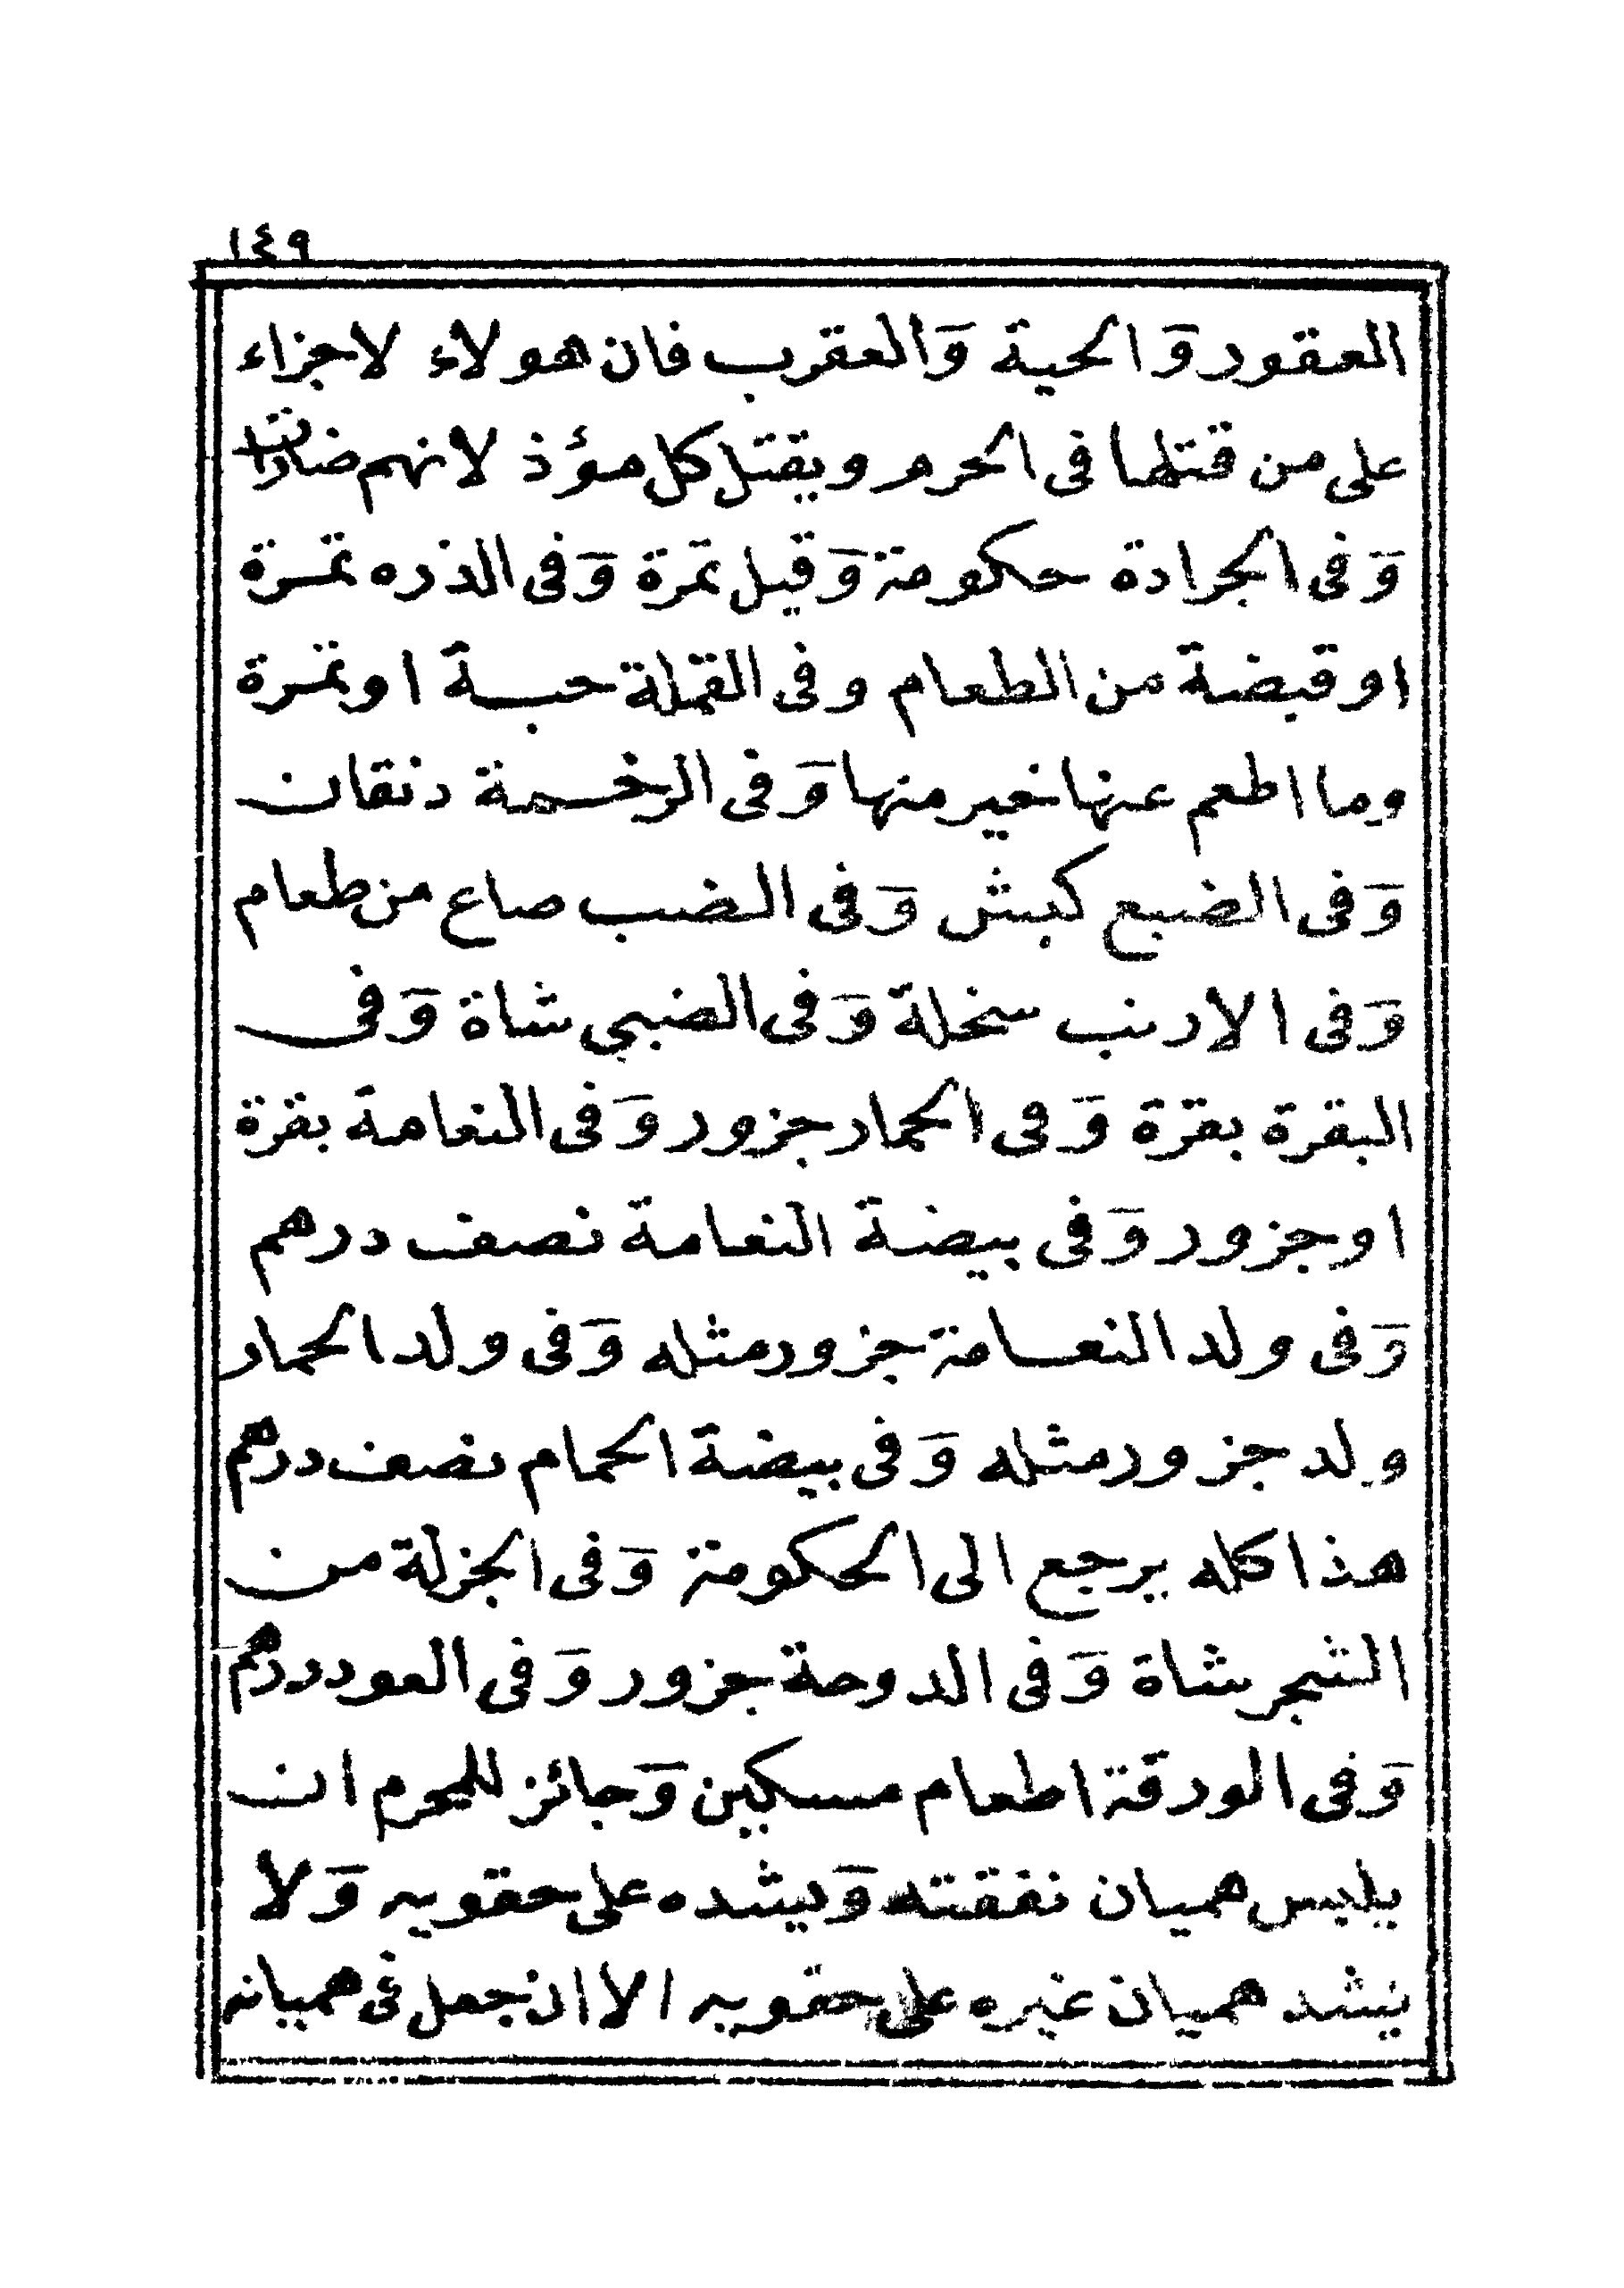 ١٤٩
العقور وَالحية وَالعقرب فان هولاء لاجزاء
على من قتلها فى الحرم ويقتل كل مؤذ لانهم ضارات
وَفى الجرادة حكومة وَقيل تمرة وَفى الذره تمرة
اوقبضة من الطعام وفى القملة حبة اوتمرة
وما اطعم عنها خير منها وَفى الرخمة دنقان
وَفى الضبع كبش وَفى الضب صاع من طعام
وَفى الارنب سخلة وَفى الضبي شاة وَفى
البقرة بقرة وَفى الحمار جزور وَفى النعامة بقرة
اوجزور وَفى بيضة النعامة نصف درهم
وَفى ولد النعامة جزور مثله وَفى ولد الحمار
ولد جزور مثله وَفى بيضة الحمام نصف درهم
هذا كله يرجع الى الحكومة وَفى الجزلة من
الشجر شاة وَفى الدوحة جزور وَفى العود درهم
وَفى الورقة اطعام مسكين وَجائز للمحرم ان
يلبس هميان نفقته وَيشده على حقويه وَلا
يشد هميان غيره على حقويه الا ان جعل فى هميانه